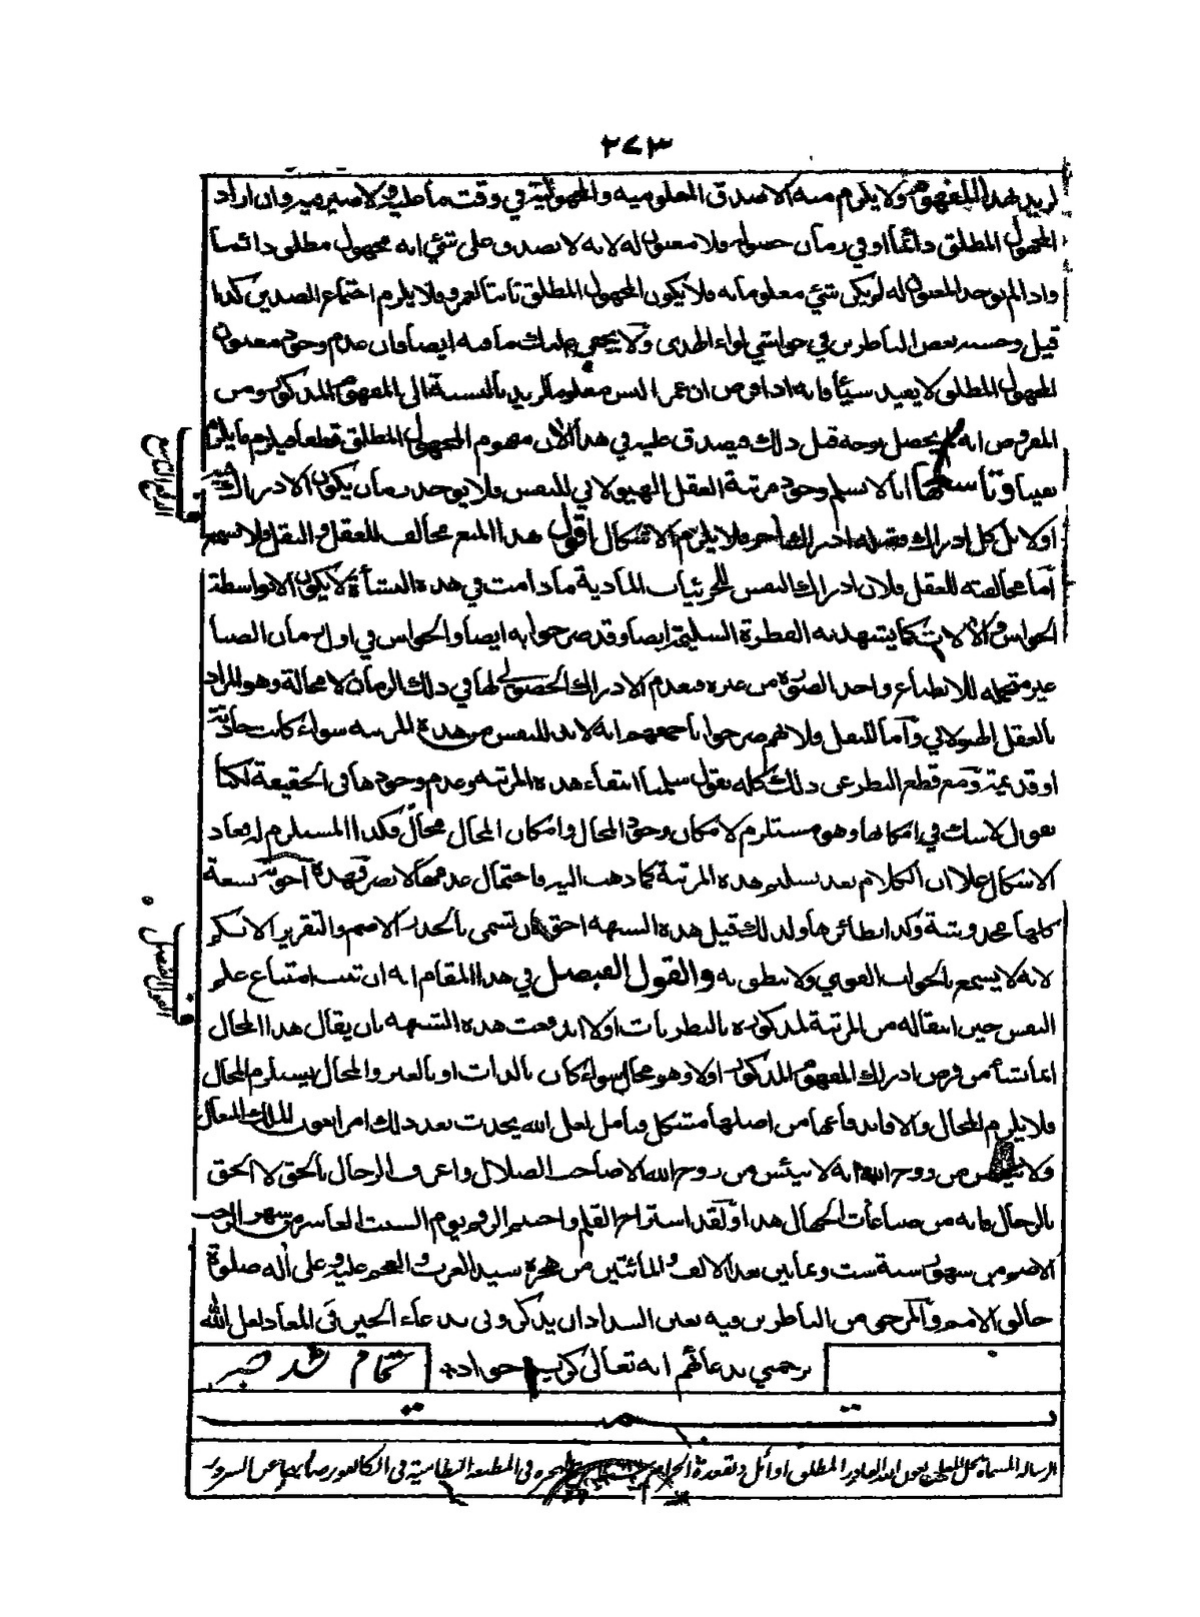 ٢٧٣
لزيد بهذا المفهوم ولا يلزم منه الا صدق المعلومية والمجهولية في وقت ما عليه ولا ضير فيه وان اراد
المجهول المطلق دائما او في زمان حصوله فلا معنون له لانه لا يصدق على شئ انه مجهول مطلق دائما
واذا لم يوجد المعنون له لم يكن شئ معلوما به فلا يكون المجهول المطلق ثابتا لعمرو فلا يلزم اجتماع الضدين كذا
قيل وحسنه بعض الناظرين في حواشي لواء الهدى ولا يخفى عليك ما فيه ايضا فان عدم وجود معنون
المجهول المطلق لا يفيد شيئا فانه اذا فرض ان عمرا ليس معلوما لزيد بالنسبة الى المفهوم المذكور ومن
المفروض انه لم يحصل بوجه قبل ذلك فيصدق عليه في هذا الآن مفهوم المجهول المطلق قطعا فيلزم ما يلزم
يقينا وتاسعها انا لا نسلم وجود مرتبة العقل الهيولاني للنفس فلا يوجد زمان يكون الادراك فيه
اولا بل كل ادراك فقبله ادراك آخر فلا يلزم الاشكال اقول هذا المنع مخالف للعقل والنقل فلا يسمع
أما مخالفته للعقل فلان ادراك النفس للجزئيات المادية ما دامت في هذه النشأة لا يكون الا بواسطة
الحواس والآلات كما يشهد به الفطرة السليمة ايضا وقد صرحوا به ايضا والحواس في اول زمان الصبا
غير متحملة للانطباع واخذ الصورة من غيره فعدم الادراك الحصولي لها في ذلك الزمان لا محالة وهو المراد
بالعقل الهيولاني وأما للنقل فلانهم صرحوا باجمعهم انه لابد للنفس من هذه المرتبة سواء كانت حادثة
او قديمة ومع قطع النظر عن ذلك كله نقول سلمنا انتفاء هذه المرتبة وعدم وجودها في الحقيقة لكنا
نقول لا شك في امكانها وهو مستلزم لامكان وجود المحال وامكان المحال محال فكذا المستلزم له فعاد
الاشكال علا ان الكلام بعد تسليم هذه المرتبة كما ذهب اليه فاحتمال عدمها لا يضر فهذه اجوبة تسعة
كلها مخدوشة وكذا نظائرها ولذلك قيل هذه الشبهه احق بان تسمى بالجذر الاصم والتقرير الابكم
لانه لا يسمع بالجواب القوي ولا ينطق به والقول الفيصل في هذا المقام انه ان ثبت امتناع علم
النفس حين انتقاله من المرتبة المذكورة بالنظريات اولا اندفعت هذه الشبهة بان يقال هذا المحال
انما نشأ من فرض ادراك المفهوم المذكور اولا وهو محال سواء كان بالذات او بالغير والمحال يستلزم المحال
فلا يلزم المحال والا فاندفاعها من اصلها مشكل فتأمل لعل الله يحدث بعد ذلك امرا بعون الملك المتعال
ولا تيئس من روح الله انه لا ييئس من روح الله الا صاحب الضلال واعرف الرجال بالحق لا الحق
بالرجال فانه من صناعات الجهال هذا ولقد استراح القلم واختتم الرقم يوم السبت العاشر من شهر الرجب
الاصم من شهور سنة ست وثمانين بعد الالف والمأتين من هجرة سيد العرب والعجم عليه وعلى آله صلوة
خالق الامم والمرجو من الناظرين فيه بعين السداد ان يذكروني بدعاء الخير في المعاد لعل الله
يرحمني بدعائهم انه تعالى كريم جواد
تمام شد
تمت
الدفع التاسع
القول الفيصل